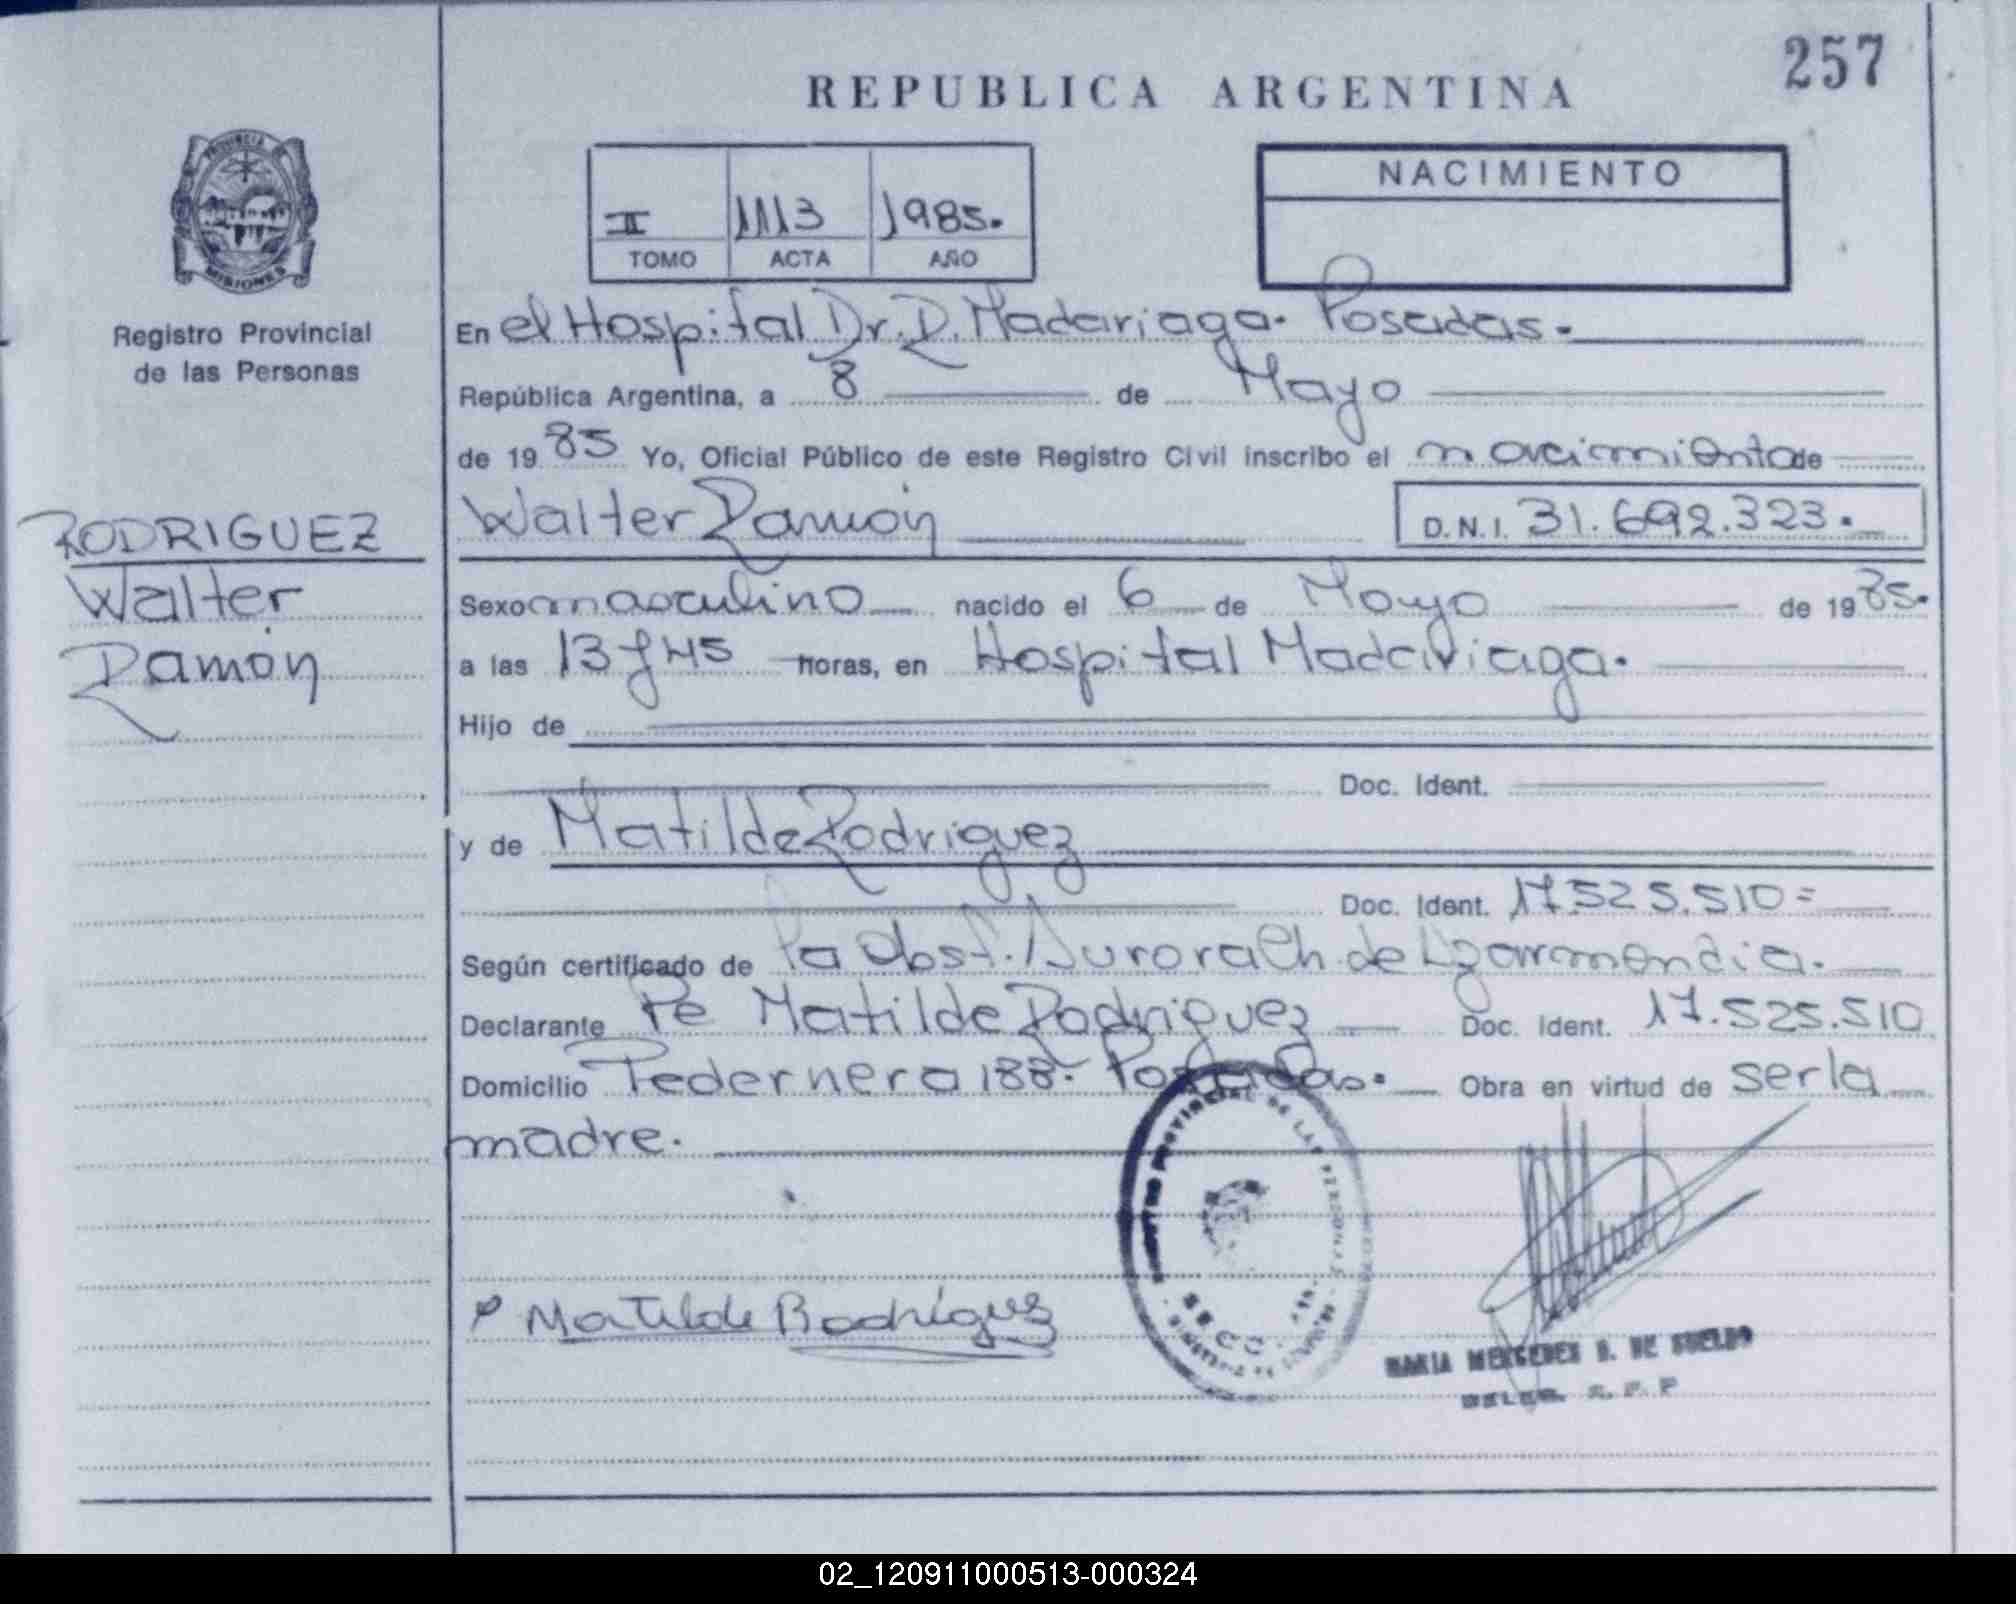 257
REPUBLICA ARGENTINA
PROVINCIA DE
MISIONES
Registro Provincial
de las Personas
II 1113 1985.
TOMO ACTA AÑO
NACIMIENTO
En el Hospital Dr. R. Madariaga. Posadas.
República Argentina, a 8 de Mayo
de 19 85 Yo, Oficial Público de este Registro Civil inscribo el nacimiento de
RODRIGUEZ
Walter
Ramón
Walter Ramón D.N.I. 31.692.323.
Sexo masculino nacido el 6 de Mayo de 19 85.
a las 13 y 45 horas, en Hospital Madariaga.
Hijo de
Doc. Ident.
y de Matilde Rodriguez
Doc. Ident. 17.525.510=
Según certificado de la Obst. Aurora Ch. de
Declarante Matilde Rodriguez Doc. Ident. 17.525.510
Domicilio Pedernera 188. Posadas. Obra en virtud de ser la
madre.
PROVINCIAL DE LAS PERSONAS
Matilde Rodríguez
MARIA MERCEDES B. DE SUELDO
02_120911000513-000324